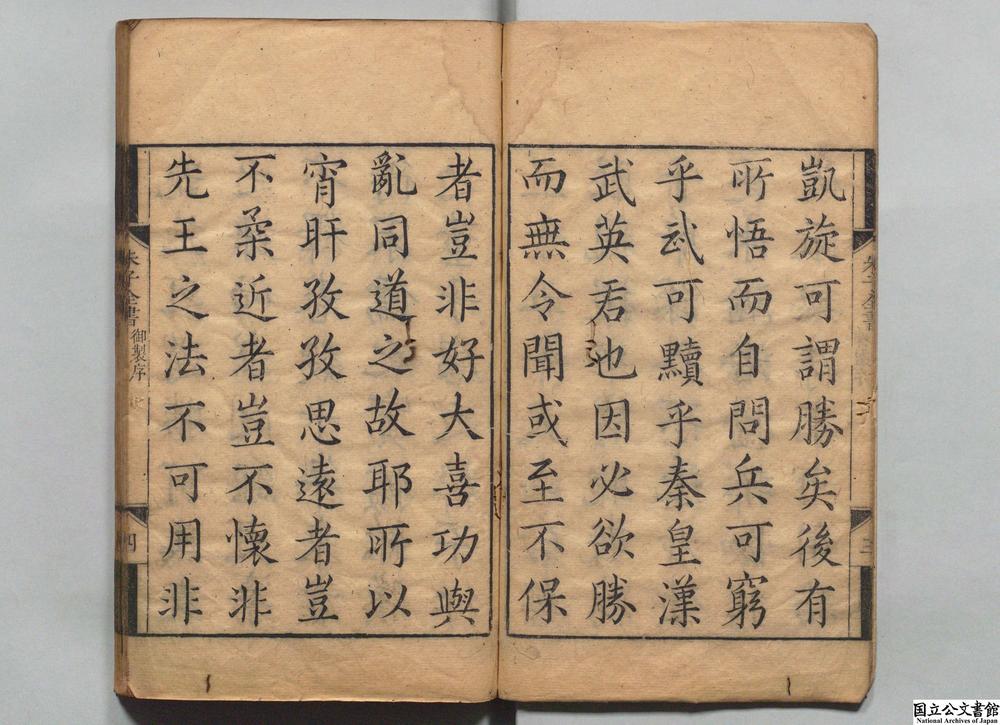 凱旋可謂勝矣後有
所悟而自問兵可窮
乎武可黷乎秦皇漢
武英君也因必欲勝
而無令聞或至不保
者豈非好大喜功與
亂同道之故耶所以
宵旰孜孜思遠者豈
不柔近者豈不懷非
先王之法不可用非
朱子全書
三
朱子全書
御製序
四
国立公文書館
National Archives of Japan